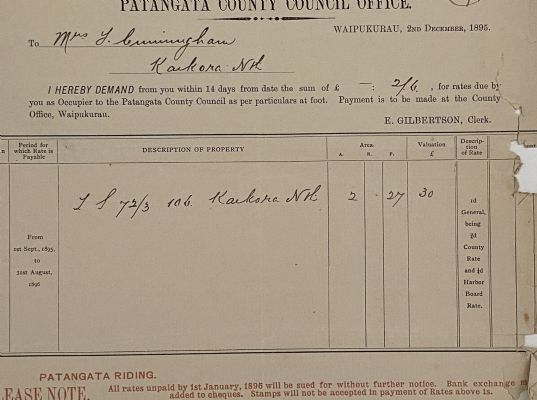 PATANGATA COUNTY COUNCIL OFFICE.
WAIPUKURAU, 2ND DECEMBER, 1895.
To Mrs J. Cunningham
Kaikora Nth
I HEREBY DEMAND from you within 14 days from date the sum of £ — : 2/6 , for rates due by
you as Occupier to the Patangata County Council as per particulars at foot. Payment is to be made at the County
Office, Waipukurau.
E. GILBERTSON, Clerk.
Period for which Rate is Payable
DESCRIPTION OF PROPERTY
Area.
A. R. P.
Valuation
£
Description of Rate
72/3 106 Kaikora Nth 2 - 27 30
From
1st Sept., 1895,
to
31st August,
1896
1d
General,
being
¾d
County
Rate
and ¼d
Harbor
Board
Rate.
PATANGATA RIDING.
LEASE NOTE.
All rates unpaid by 1st January, 1896 will be sued for without further notice. Bank exchange m
added to cheques. Stamps will not be accepted in payment of Rates above 1s.